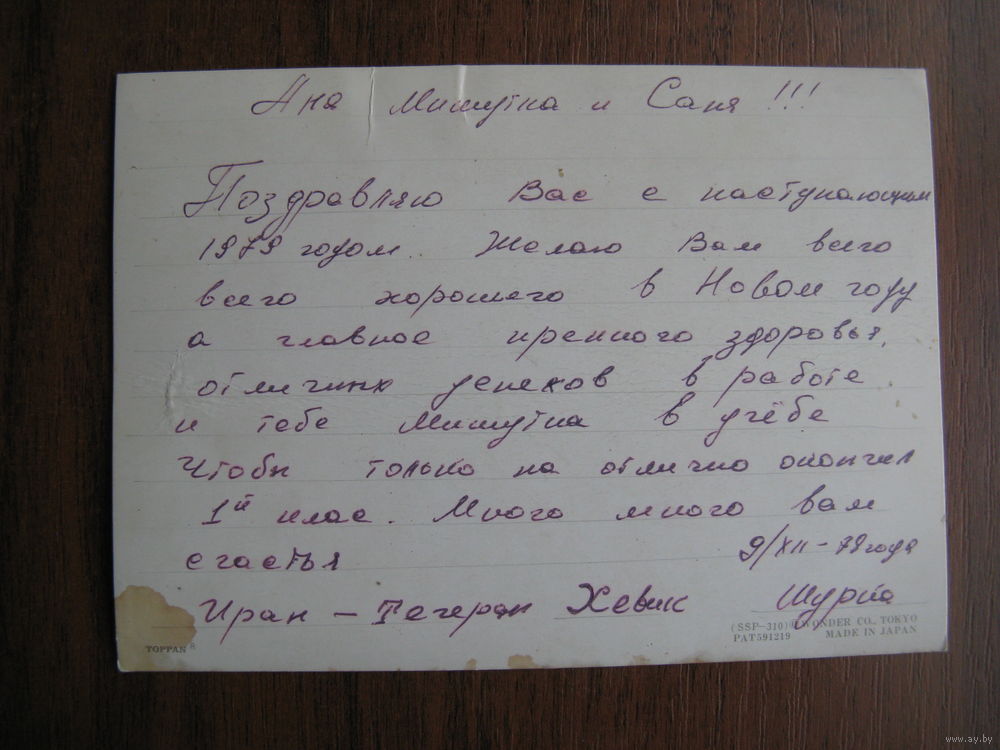 Аня Мишутка и Саня !!!
Поздравляю Вас с наступающим
1979 годом. Желаю Вам всего
всего хорошего в Новом году
а главное крепкого здоровья,
отличных успехов в работе.
и тебе Мишутка в учёбе
Чтобы только на отлично окончил
1й клас. Много много вам
счастья 9/XII-78 года
Иран - Тегеран Хевик
(SSP-310) © WONDER CO., TOKYO
PAT591219 MADE IN JAPAN
TOPPAN ®
www.ay.by